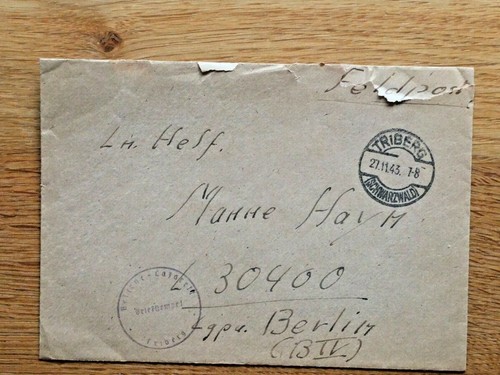 Feldpost
TRIBERG
27.11.43. 7-8
(SCHWARZWALD)
Ln. Helf.
Manne Hayn
L 30400
Lgpa. Berlin
(B IV.)
Briefstempel